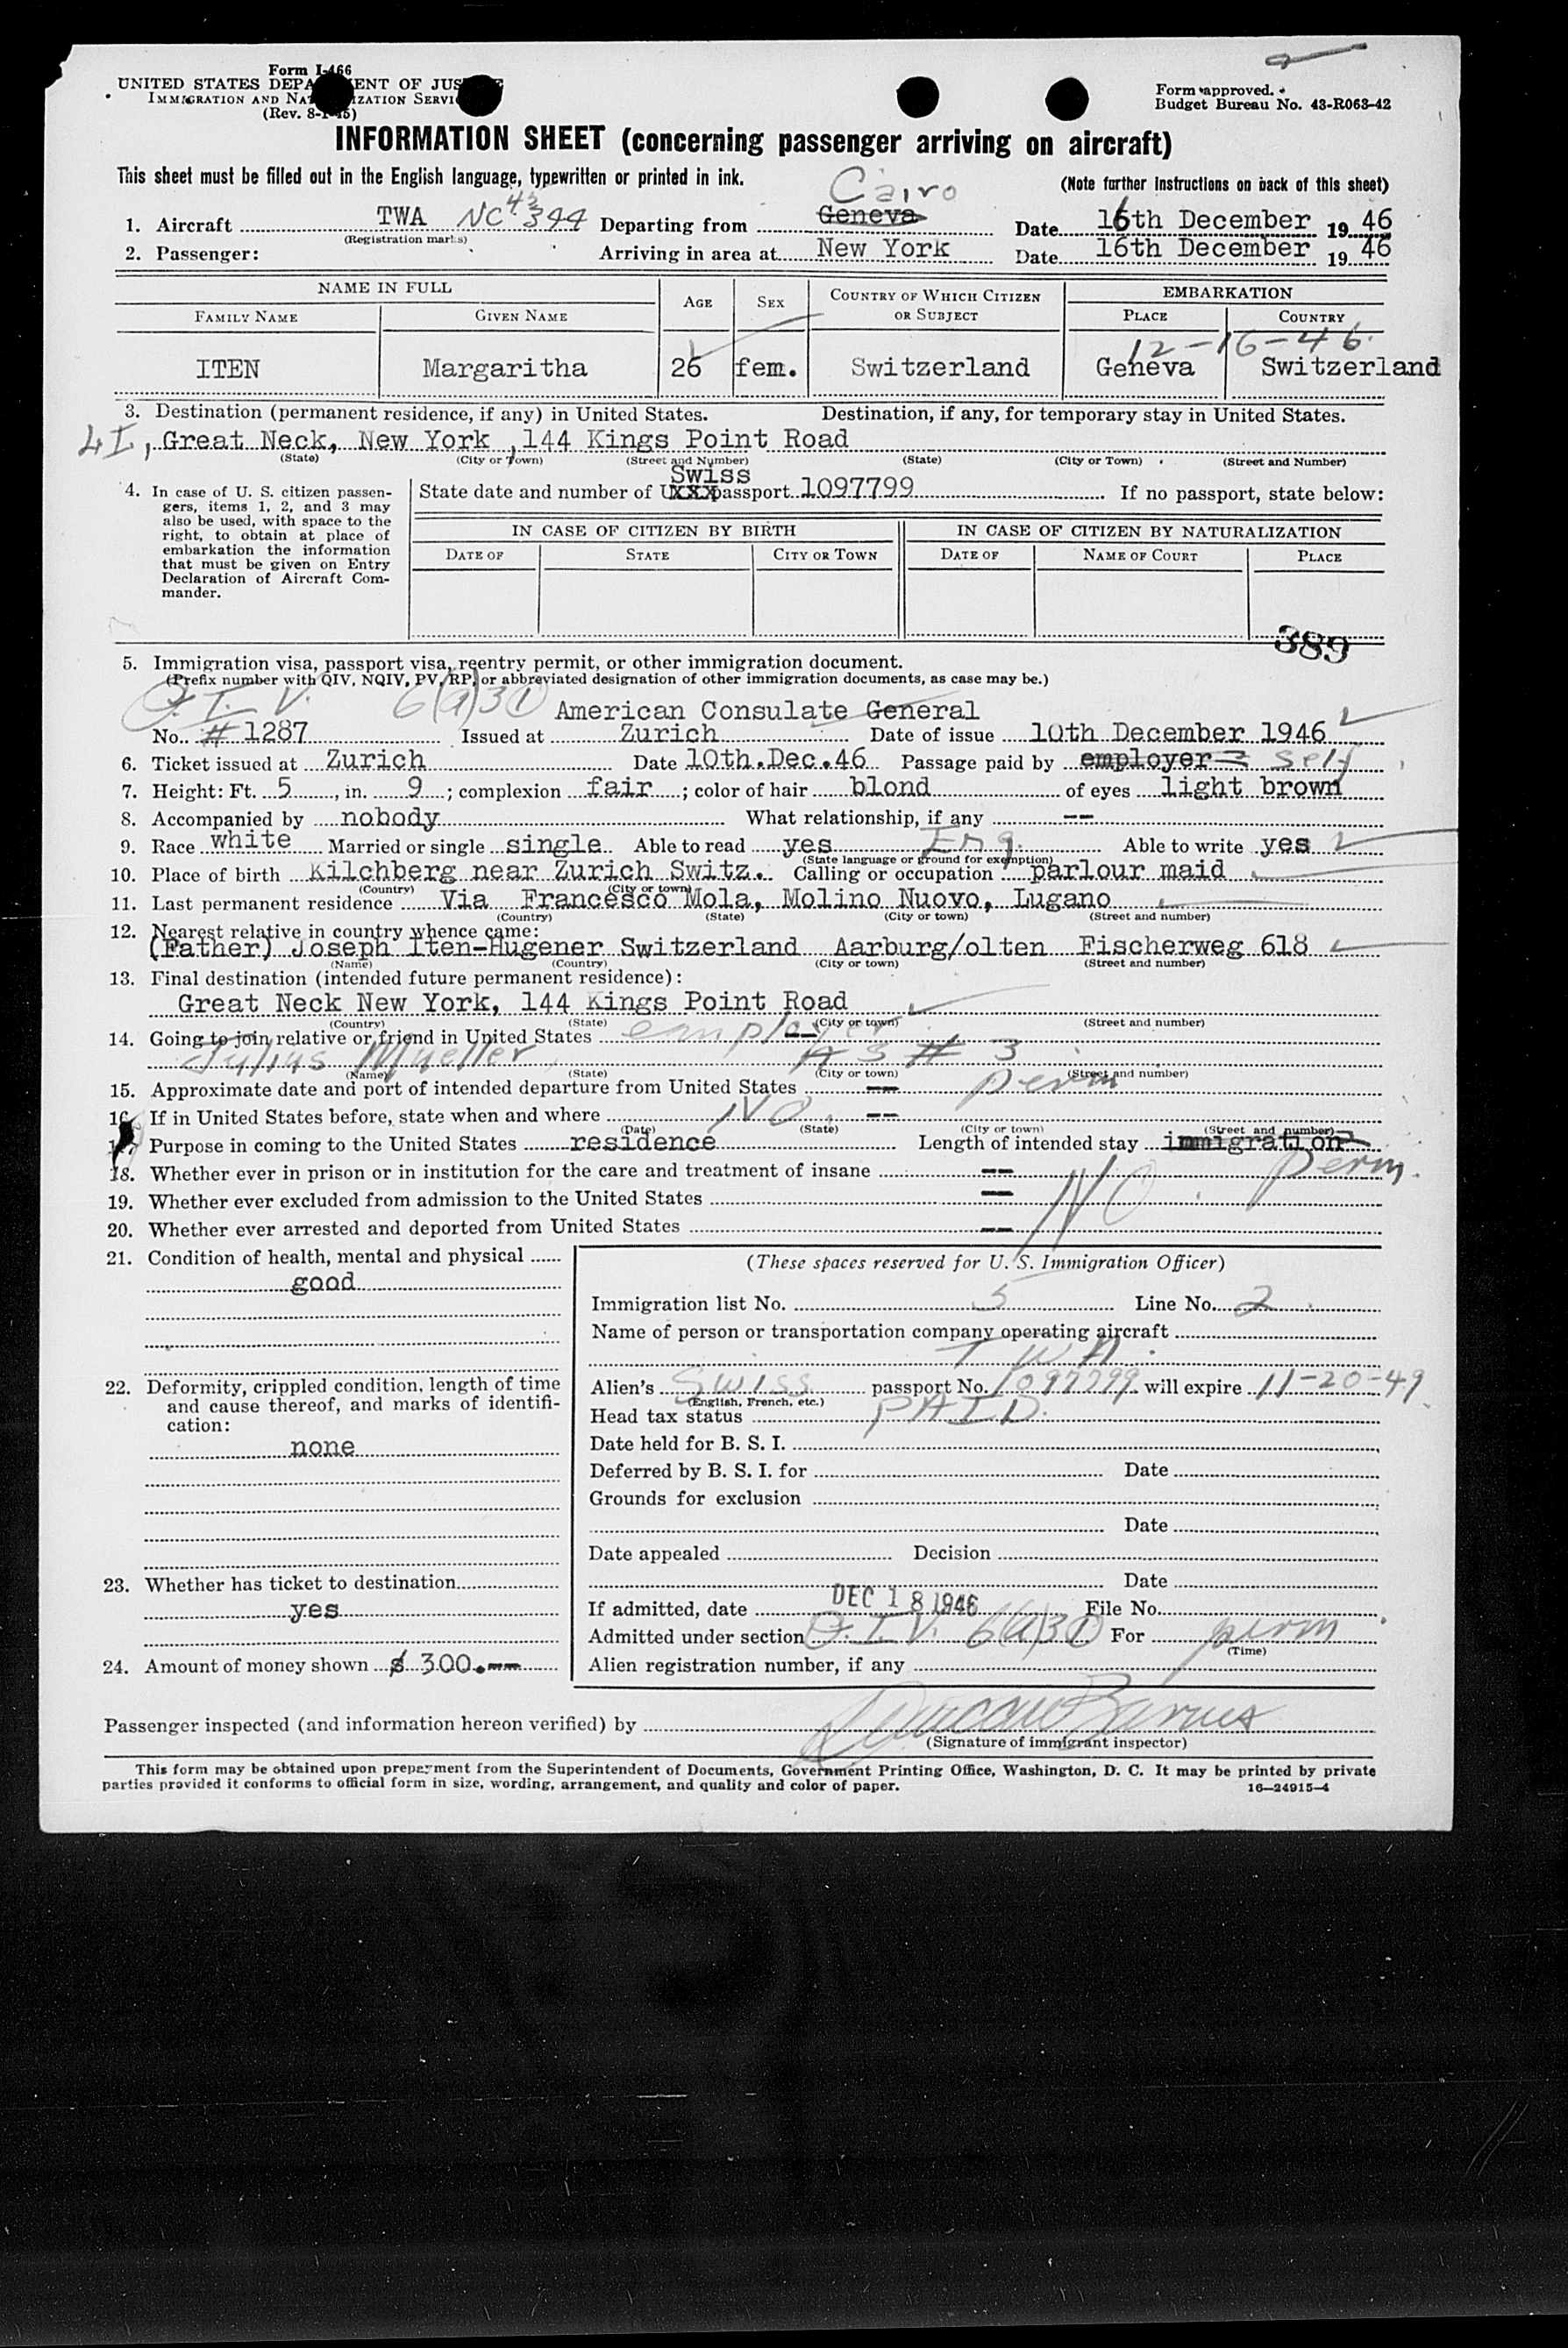 Form I-466
UNITED STATES DEPARTMENT OF JUSTICE
IMMIGRATION AND NATURALIZATION SERVICE
(Rev. 8-1-45)
Form approved.
Budget Bureau No. 43-R063-42
INFORMATION SHEET (concerning passenger arriving on aircraft)
This sheet must be filled out in the English language, typewritten or printed in ink.
(Note further instructions on back of this sheet)
Cairo
1. Aircraft TWA NC 43 344 Departing from Geneva Date 16th December 1946
(Registration marks)
2. Passenger: Arriving in area at New York Date 16th December 1946
NAME IN FULL AGE SEX COUNTRY OF WHICH CITIZEN OR SUBJECT EMBARKATION
FAMILY NAME GIVEN NAME PLACE COUNTRY
12-16-46
ITEN Margaritha 26 fem. Switzerland Geneva Switzerland
3. Destination (permanent residence, if any) in United States. Destination, if any, for temporary stay in United States.
LI, Great Neck, New York ,144 Kings Point Road
(State) (City or Town) (Street and Number) (State) (City or Town) (Street and Number)
Swiss
4. In case of U. S. citizen passengers, items 1, 2, and 3 may also be used, with space to the right, to obtain at place of embarkation the information that must be given on Entry Declaration of Aircraft Commander.
State date and number of UXXX passport 1097799 If no passport, state below:
IN CASE OF CITIZEN BY BIRTH IN CASE OF CITIZEN BY NATURALIZATION
DATE OF STATE CITY OR TOWN DATE OF NAME OF COURT PLACE
389
5. Immigration visa, passport visa, reentry permit, or other immigration document.
(Prefix number with QIV, NQIV, PV, RP, or abbreviated designation of other immigration documents, as case may be.)
Q.I.V. 6(a)3(1) American Consulate General
No. # 1287 Issued at Zurich Date of issue 10th December 1946
6. Ticket issued at Zurich Date 10th.Dec.46 Passage paid by employer self
7. Height: Ft. 5, in. 9; complexion fair; color of hair blond of eyes light brown
8. Accompanied by nobody What relationship, if any --
9. Race white Married or single single Able to read yes Eng. Able to write yes
(State language or ground for exemption)
10. Place of birth Kilchberg near Zurich Switz. Calling or occupation parlour maid
(Country) (City or town)
11. Last permanent residence Via Francesco Mola, Molino Nuovo, Lugano
(Country) (State) (City or town) (Street and number)
12. Nearest relative in country whence came:
(Father) Joseph Iten-Hugener Switzerland Aarburg/olten Fischerweg 618
(Name) (Country) (City or town) (Street and number)
13. Final destination (intended future permanent residence):
Great Neck New York, 144 Kings Point Road
(Country) (State) (City or town) (Street and number)
14. Going to join relative or friend in United States -- employer
Julius Mueller AS # 3
(Name) (State) (City or town) (Street and number)
15. Approximate date and port of intended departure from United States -- perm
16. If in United States before, state when and where NO. --
(Date) (State) (City or town) (Street and number)
17. Purpose in coming to the United States residence Length of intended stay immigration
perm.
18. Whether ever in prison or in institution for the care and treatment of insane --
19. Whether ever excluded from admission to the United States -- NO
20. Whether ever arrested and deported from United States --
21. Condition of health, mental and physical
good
(These spaces reserved for U. S. Immigration Officer)
Immigration list No. 5 Line No. 2
Name of person or transportation company operating aircraft
TWA
22. Deformity, crippled condition, length of time and cause thereof, and marks of identification:
none
Alien's Swiss passport No. 1097799 will expire 11-20-49
(English, French, etc.)
Head tax status PAID.
Date held for B. S. I.
Deferred by B. S. I. for Date
Grounds for exclusion
Date
Date appealed Decision
Date
23. Whether has ticket to destination
yes
If admitted, date DEC 18 1946 File No.
Admitted under section Q.I.V. 6(a)3(1) For perm
(Time)
24. Amount of money shown $ 300.--
Alien registration number, if any
Passenger inspected (and information hereon verified) by Duncan Barnes
(Signature of immigrant inspector)
This form may be obtained upon prepayment from the Superintendent of Documents, Government Printing Office, Washington, D. C. It may be printed by private
parties provided it conforms to official form in size, wording, arrangement, and quality and color of paper. 16—24915-4